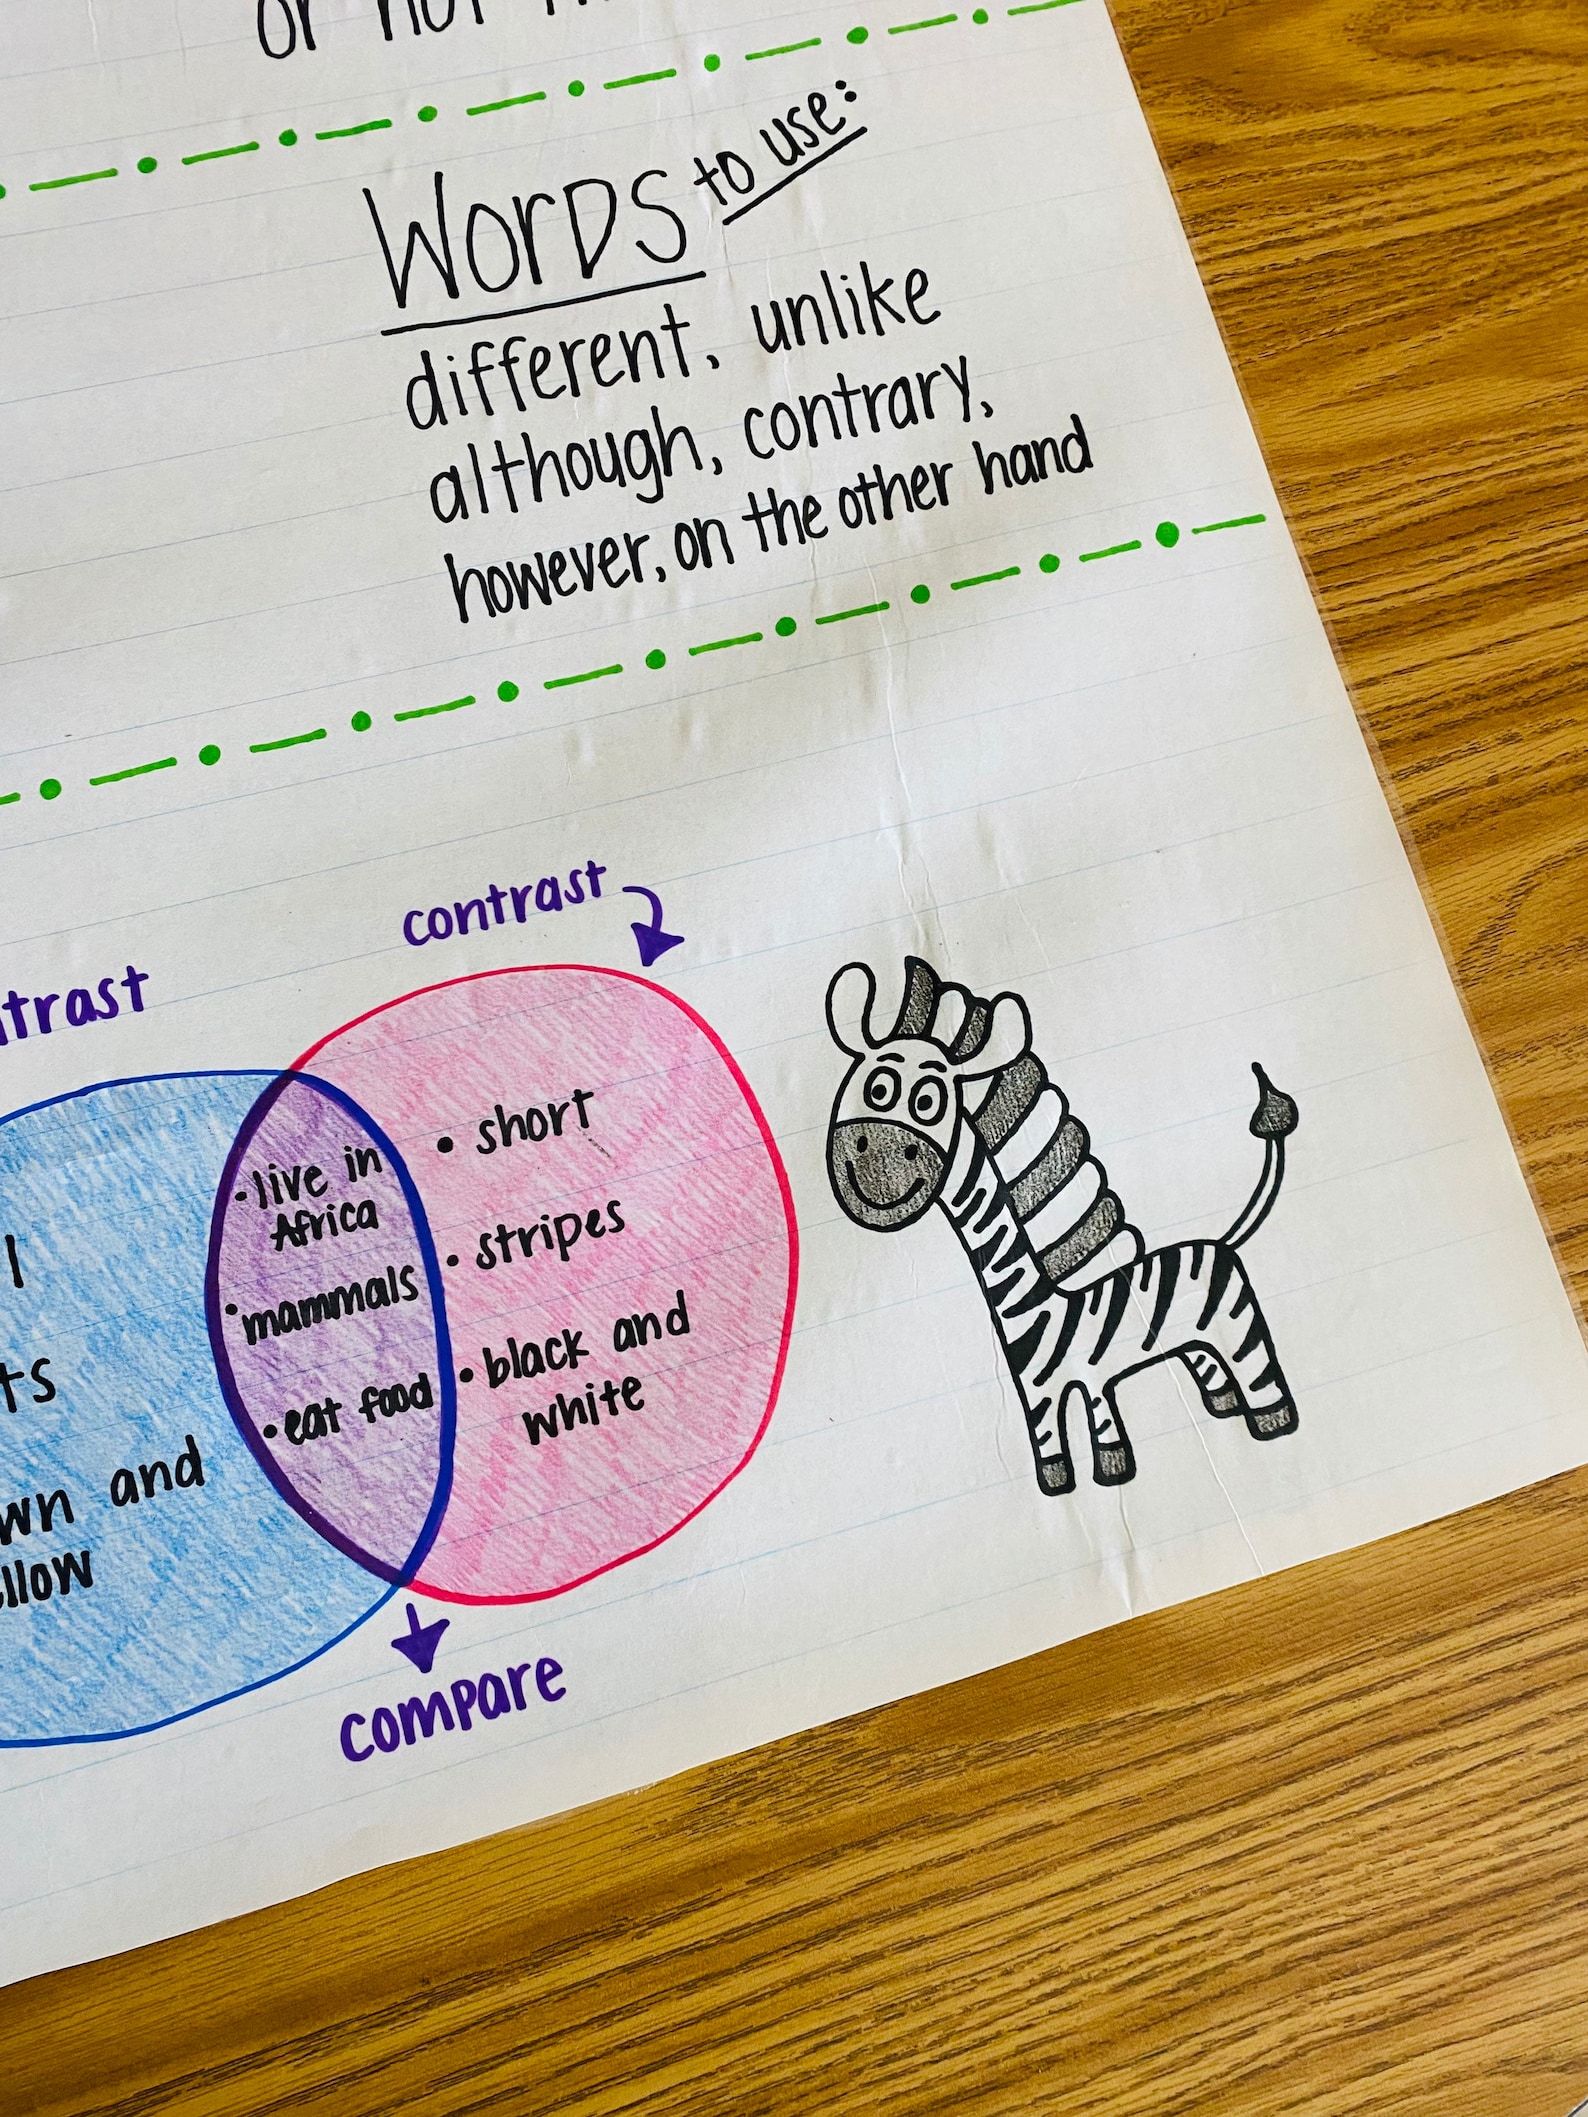 or not
Words to use:
different, unlike
although, contrary,
however, on the other hand
contrast
trast
• short
• stripes
• black and
white
• live in
Africa
• mammals
• eat food
l
ts
wn and
llow
compare